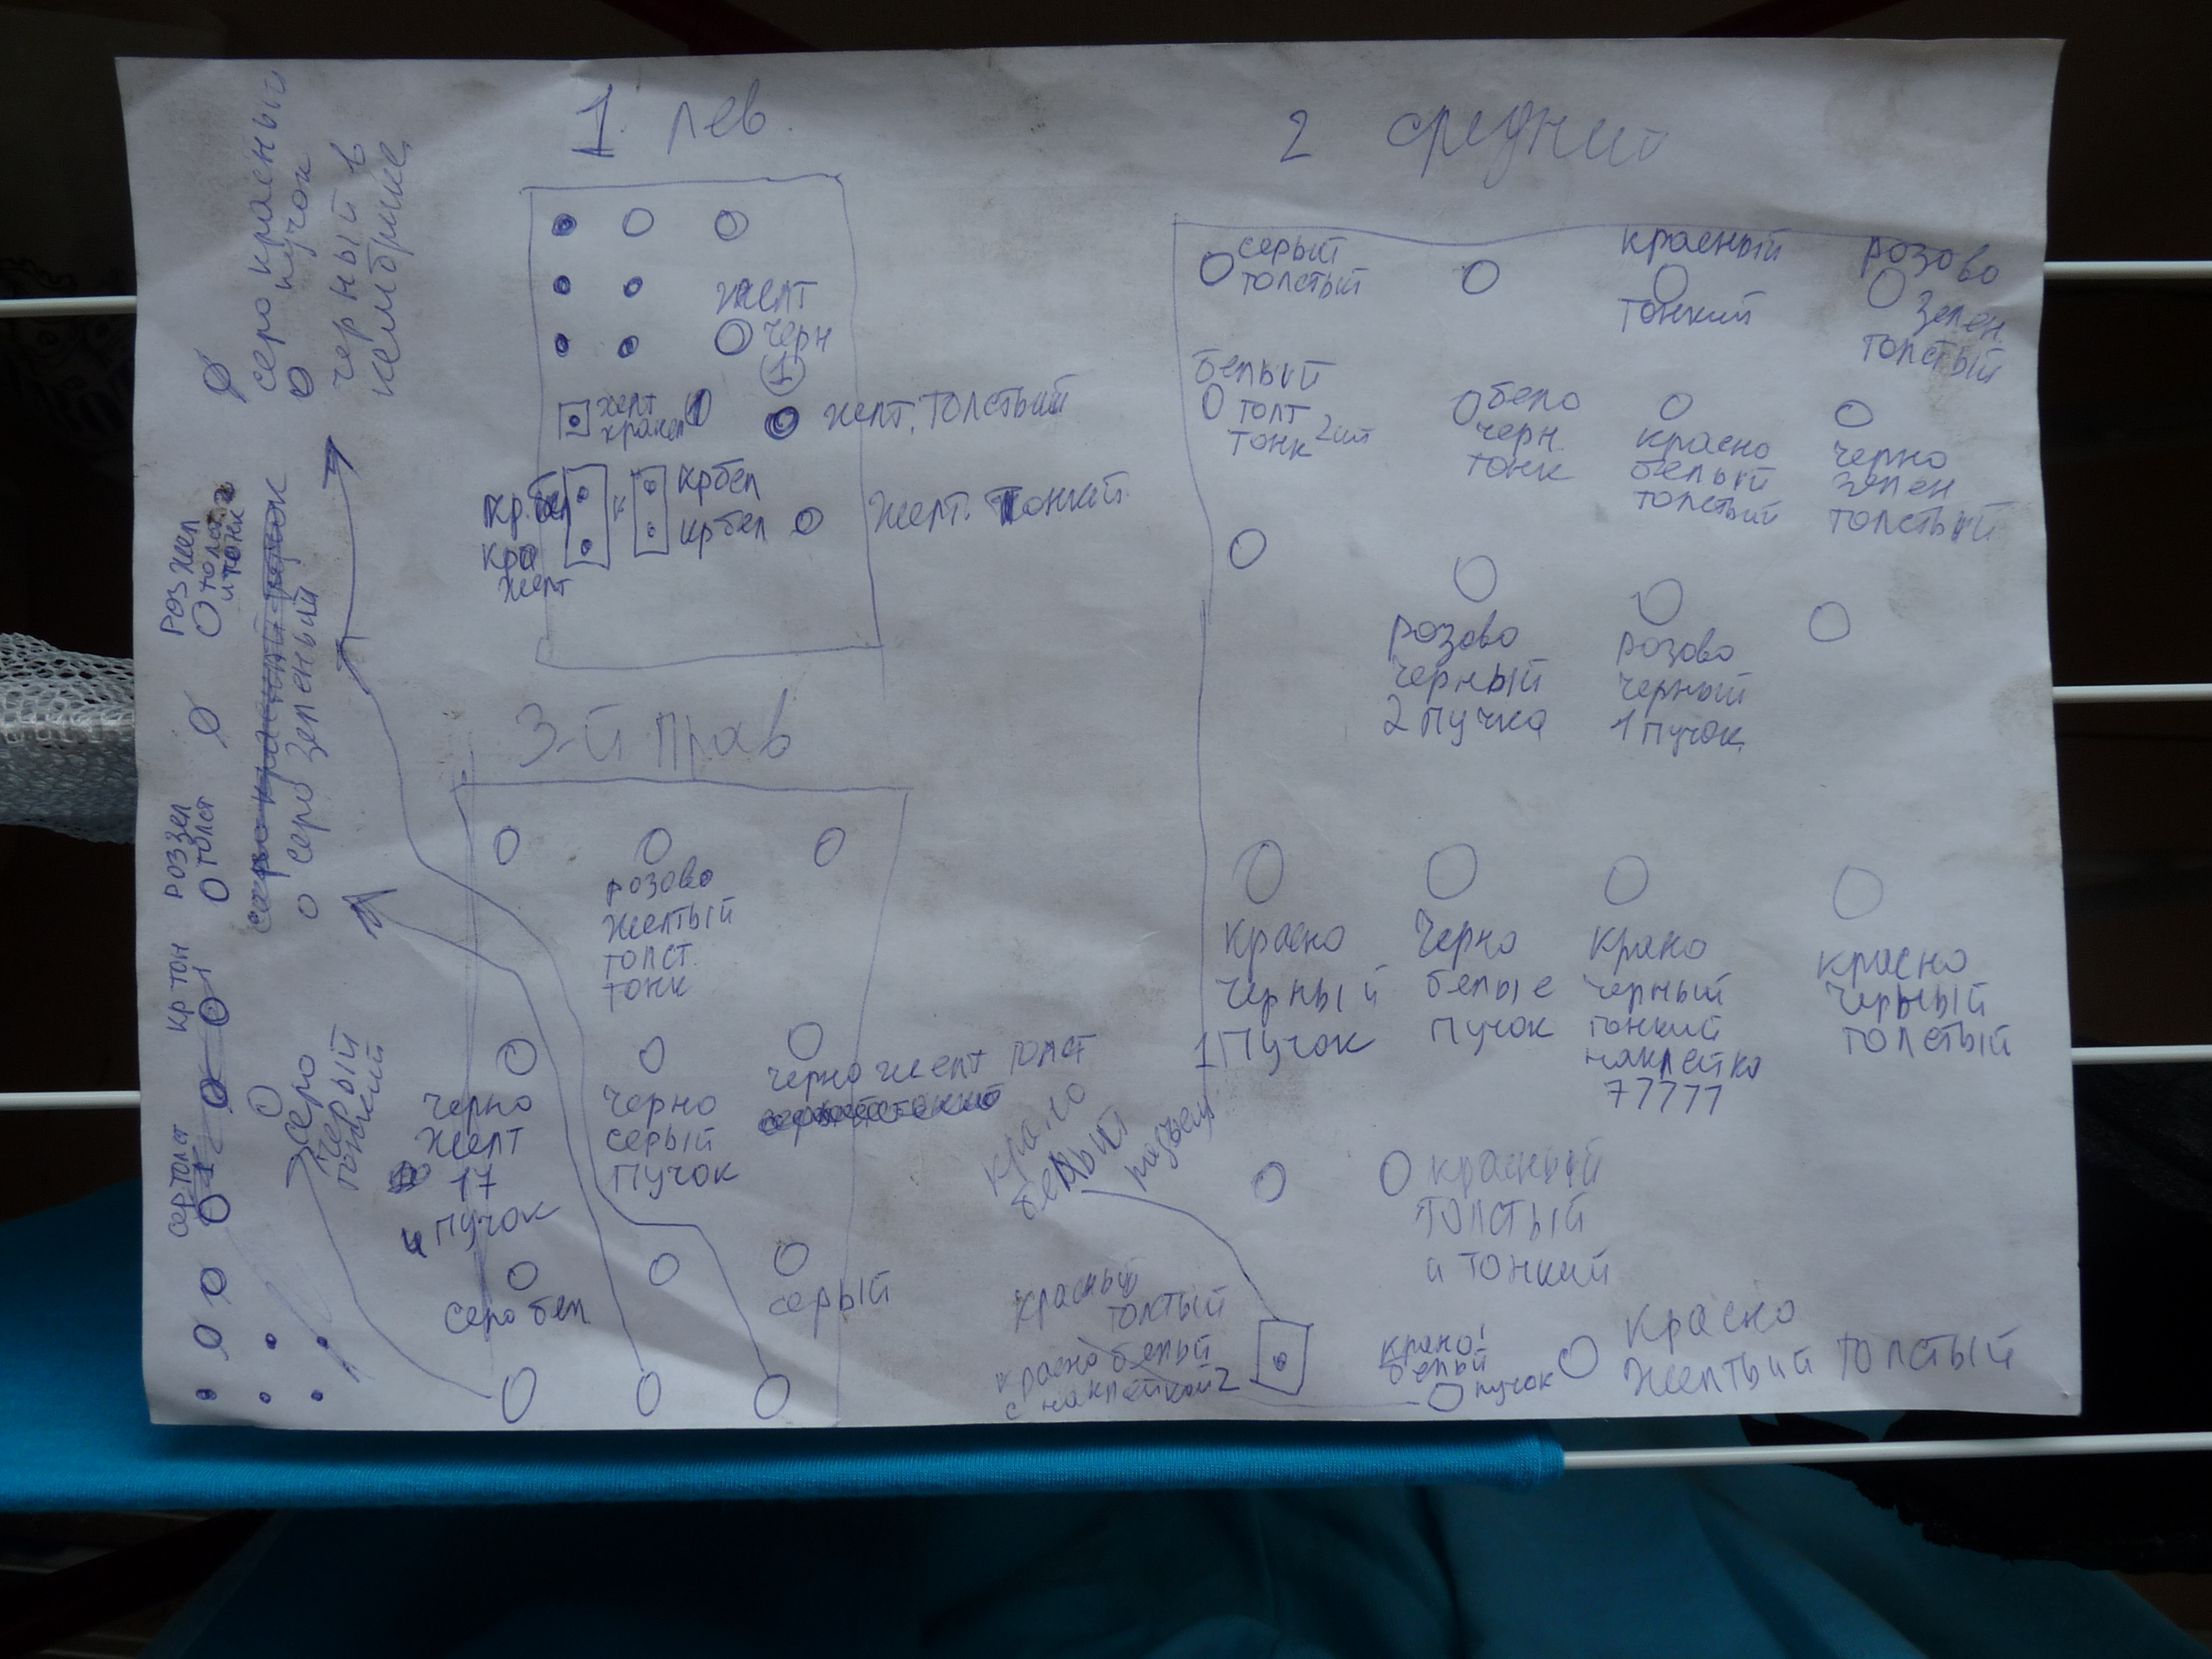 1. лев.
желт
черн
1
желт
желт. толстый
кр.бел
крбел
крбел
желт. тонкий
желт
2 средний
серый
толстый
красный
тонкий
розово
зелен.
толстый
белый
толт
тонк 2шт
бело
черн
тонк
красно
белый
толстый
черно
зелен
толстый
розово
черный
2 пучка
розово
черный
1 пучок
красно
черный
1 пучок
черно
белые
пучок
крано
черный
тонкий
наклейка
77777
красно
черный
толстый
красный
толстый
и тонкий
красно
желтый толстый
крано
белый
пучок
крано
белый
разъем
красный
толтый
красно белый
с наклейкой 2
3-й прав
розово
желтый
толст.
тонк
черно
желт
17
и пучок
черно
серый
пучок
черно желт толст
серо бел
серый
серо красный
пучок
черный в
кембрике
роз жел
толст
и тонк
серо зеленый
роззел
толст
кр тон
сер толст
серо
тонкий